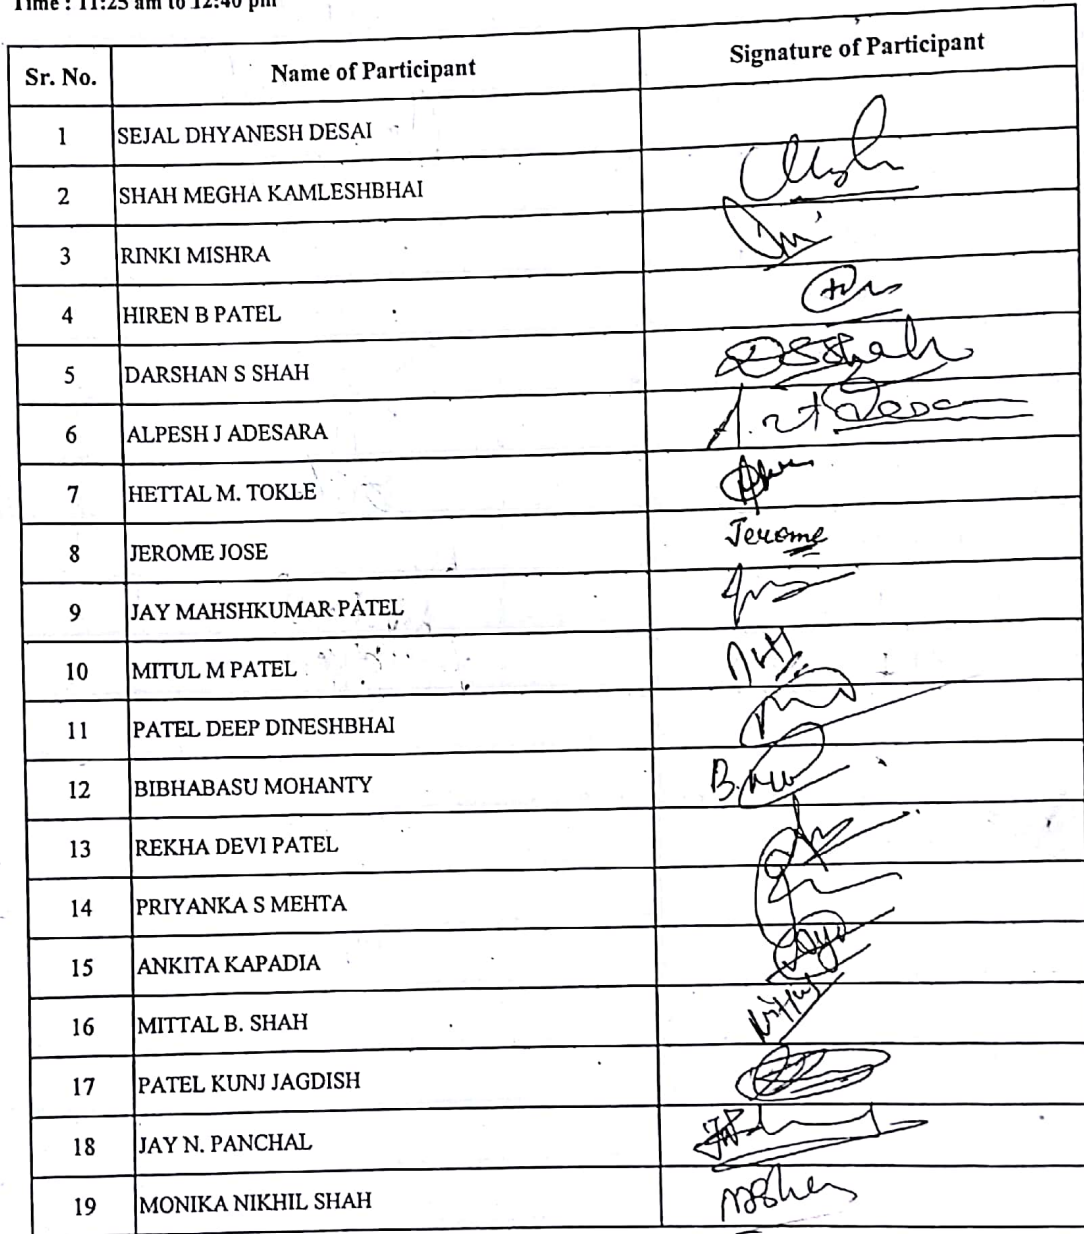 Time : 11:25 am to 12:40 pm
Sr. No. Name of Participant Signature of Participant
1 SEJAL DHYANESH DESAI
2 SHAH MEGHA KAMLESHBHAI
3 RINKI MISHRA
4 HIREN B PATEL
5 DARSHAN S SHAH DSShah
6 ALPESH J ADESARA
7 HETTAL M. TOKLE
8 JEROME JOSE Jerome
9 JAY MAHSHKUMAR PATEL
10 MITUL M PATEL
11 PATEL DEEP DINESHBHAI
12 BIBHABASU MOHANTY
13 REKHA DEVI PATEL
14 PRIYANKA S MEHTA
15 ANKITA KAPADIA
16 MITTAL B. SHAH
17 PATEL KUNJ JAGDISH
18 JAY N. PANCHAL
19 MONIKA NIKHIL SHAH